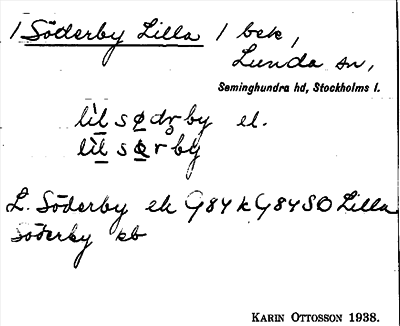 / Söderby Lilla / bek,
Lunda sn,
Seminghundra hd, Stockholms l.
lìl sødr̥by el.
lìl sør by
L. Söderby ek G84 k G84SO Lilla
Söderby kb
KARIN OTTOSSON 1938.